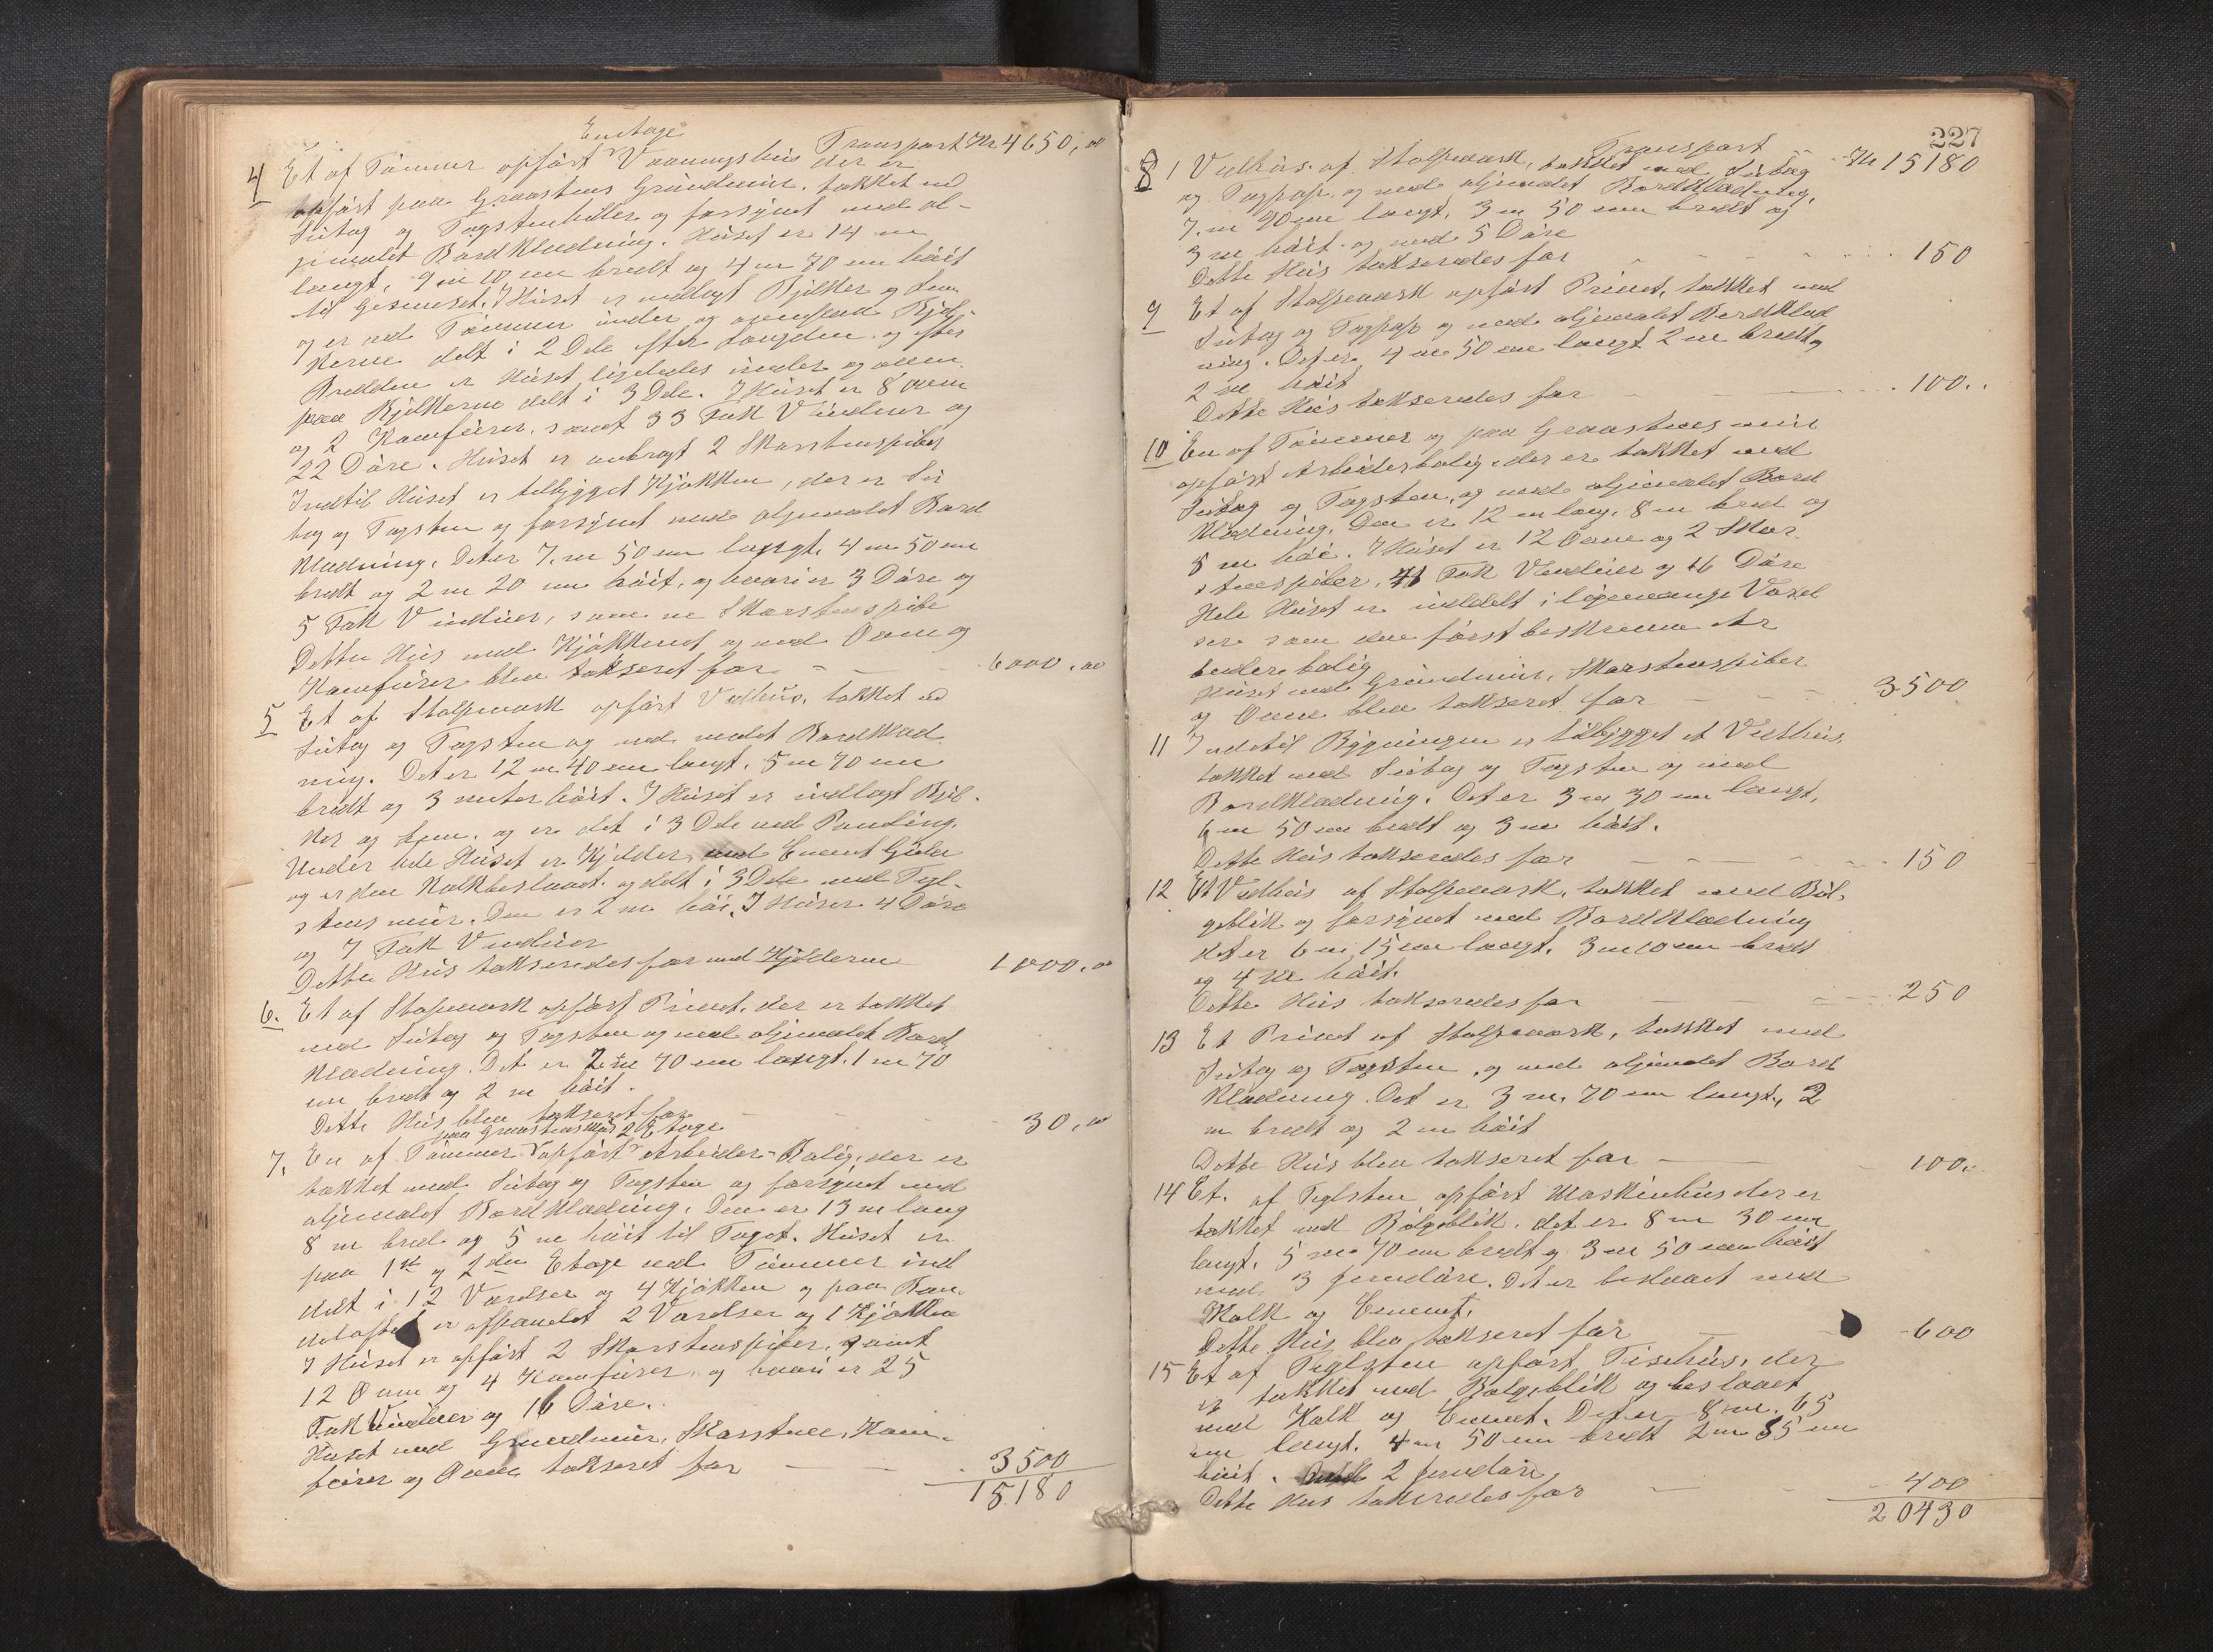 Enetage
Transport Kr 4650,00
4 Et af Tømmer opført Vaaningshus der er
opført paa Graastens Grundmur, tækket med
Sutag og Tagstenheller og forsynet med ol-
jemalet Bordklædning. Huset er 14 m
langt, 9 m 10 cm bredt og 4 m 70 cm høit
til Gesemset. I Huset er indlagt Bjelker og Lem
og er med Tømmer under og ovenpaa Bjel-
kerne delt i 2 Dele efter Længden og efter
Bredden er Huset ligeledes under og oven
paa Bjelkerne delt i 3 Dele. I Huset er 8 Ovne
og 2 Komfurer, samt 33 Fakk Vinduer og
22 Døre. Huset er anbragt 2 Skorstenspiber
Indtil Huset er tilbygget Kjøkken, der er Su
tag og Tagsten og forsynet med oljemalet Bord
klædning. Det er 7 m 50 cm langt, 4 m 50 cm
bredt og 2 m 20 cm høit, og hvori er 3 Døre og
5 Fakk Vinduer, samt en Skorstenspibe
Dette Hus med Kjøkkenet og med Ovne og
Komfurer blev takseret for - - - 6000,00
5 Et af Stolpeværk opført Vedhus, tækket med
Sutag og Tagsten og med malet Bordklæd
ning. Det er 12 m 40 cm langt, 5 m 70 cm
bredt og 3 meter høit. I Huset er indlagt Bjel-
ker og Lem, og er delt i 3 Dele med Paneling.
Under hele Huset er Kjelder med Cement Gulv
og er den Kalkbeslaaet og delt i 3 Dele med Tegl-
stens mur. Den er 2 m høi. I Huser 4 Døre
og 7 Fakk Vinduer
Dette Hus takseredes for med Kjelderen 1000,00
6. Et af Stolpeværk opført Privet, der er tækket
med Sutag og Tagsten og med oljemalet Bord
klædning. Det er 2 m 70 cm langt, 1 m 70
cm bredt og 2 m høit.
Dette Hus blev takseret for - - - 30,00
paa Graastensmur 2 Etage
7. En af Tømmer opført Arbeider-Bolig, der er
tækket med Sutag og Tagsten og forsynet med
oljemalet Bordklædning. Den er 13 m lang
8 m bred og 5 m høit til Taget. Huset er
paa 1ste og 2den Etage med Tømmer ind
delt i 12 Værelser og 4 Kjøkken og paa
er afpanelet 2 Værelser og 1 Kjøkken
I Huset er opført 2 Skorstenspiber, samt
12 Ovne og 4 Komfurer, og hvori er 25
Fakk Vinduer og 16 Døre.
Huset med Grundmur, Skorstene, Kom-
furer og Ovne takseret for - - 3500
15180
227
Transport
8 1 Vedhus af Stolpeværk, tækket med Sutag - Kr 15180
og Tagpap, og med oljemalet Bordklædning,
7 m 90 cm langt, 3 m 50 cm bredt og
3 m høit og med 5 Døre
Dette Hus takseredes for - - - 150
9 Et af Stolpeværk opført Privet, tækket med
Sutag og Tagpap og med oljemalet Bordklæd
ning. Det er 4 m 50 cm langt 2 m bredt og
2 m høit
Dette Hus takseredes for - - - 100..
10 En af Tømmer og paa Graastens mur
opført Arbeiderbolig, der er tækket med
Sutag og Tagsten, og med oljemalet Bord
klædning. Den er 12 m lang, 8 m bred og
5 m høi. I Huset er 12 Ovne og 2 Skor-
stenspiber, 41 Fakk Vinduer og 16 Døre
Hele Huset er inddelt i ligemange Værel
ser som den førstbeskrevne Ar
beiderbolig
Huset med Grundmur, Skorstenspiber
og Ovne blev takseret for - - - 3500
11 Indtil Bygningen er tilbygget et Vedhus,
tækket med Sutag og Tagsten og med
Bordklædning. Det er 3 m 30 cm langt,
6 m 50 cm bredt og 3 m høit.
Dette Hus takseredes for - - - 150
12 Et Vedhus af Stolpeværk, tækket med Bøl-
geblik og forsynet med Bordklædning
det er 6 m 15 cm langt, 3 m 10 cm bredt
og 4 m høit.
Dette Hus takseredes for - - - 250
13 Et Privet af Stolpeværk, tækket med
Sutag og Tagsten, og med oljemalet Bord
klædning. Det er 3 m. 70 cm langt, 2
m bredt og 2 m høit
Dette Hus blev takseret for - - 100..
14 Et. af Teglsten opført Maskinhus der er
tækket med Bølgeblik, det er 8 m 30 cm
langt, 5 m 70 cm bredt og 3 m 50 cm høit
med 3 Jerndøre. Det er beslaaet med
Kalk og Cement.
Dette Hus blev takseret for - - 600
15 Et af Teglsten opført Fischus, der
er tækket med Bølgeblik og beslaaet
med Kalk og Cement. Det er 8 m. 65
cm langt, 4 m 50 cm bredt 2 m 85 cm
høit. 2 Jerndøre,
Dette Hus takseredes for - - 400
20430